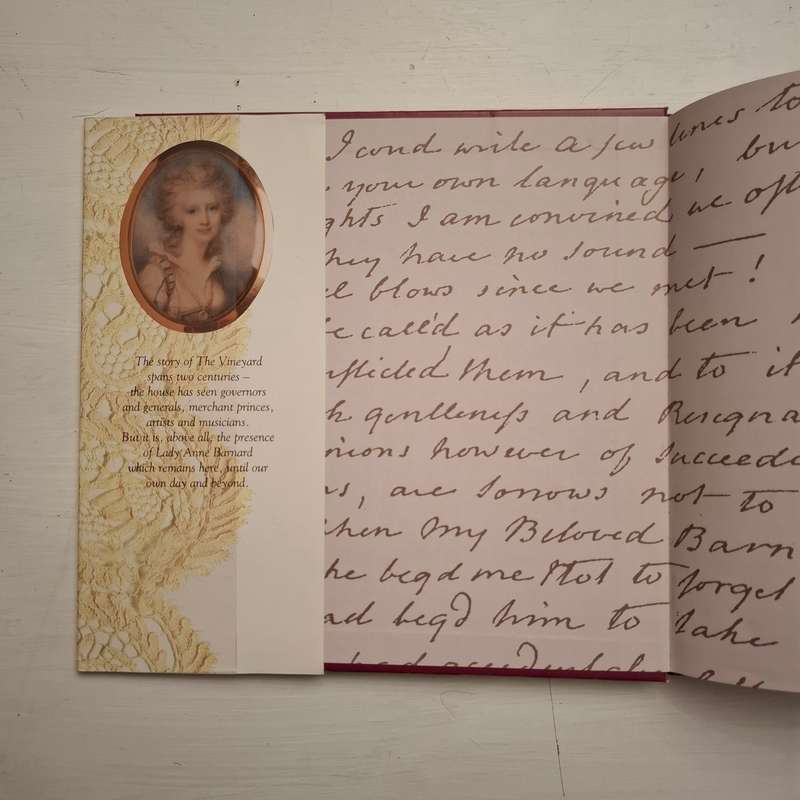 The story of The Vineyard
spans two centuries –
the house has seen governors
and generals, merchant princes,
artists and musicians.
But it is, above all, the presence
of Lady Anne Barnard
which remains here, until our
own day and beyond.
I coud write a few lines to
your own language, but
ghts I am convinced we oft
they have no sound —
el blows since we met!
be calld as it has been
nflicted them, and to it
h gentleness and Resigna
nions however of Succeed
ns, are sorrows not to
When My Beloved Barn
he begd me Not to forget
ad begd him to take